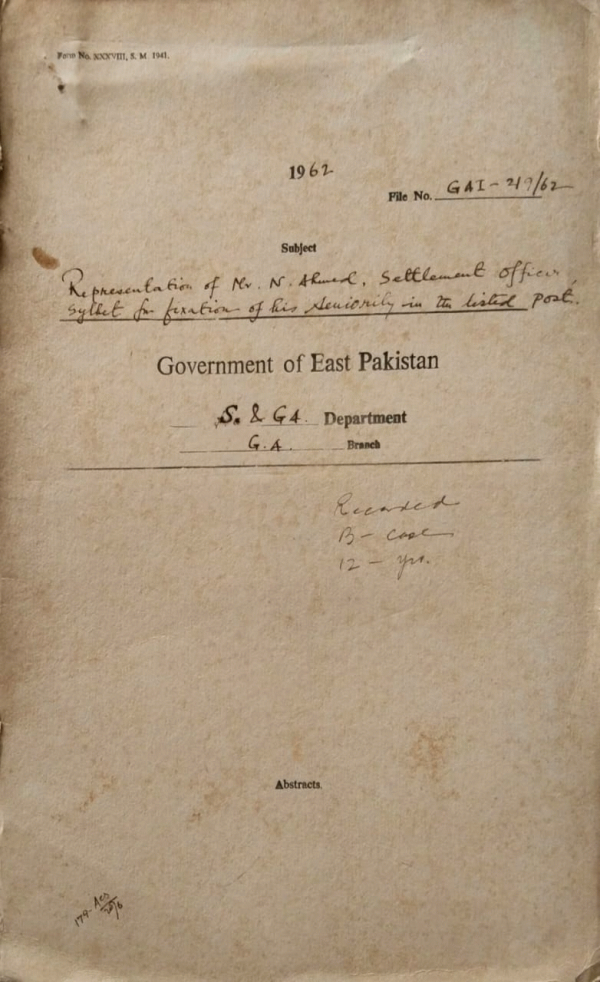 Form No. XXXVIII, S. M. 1941.
1962
File No. GAI-219/62
Subject
Representation of Mr. N. Ahmed, Settlement Officer,
Sylhet for fixation of his seniority in the listed post.
Government of East Pakistan
S. & GA. Department
G.A. Branch
Recorded
B- case
12 - yrs.
Abstracts.